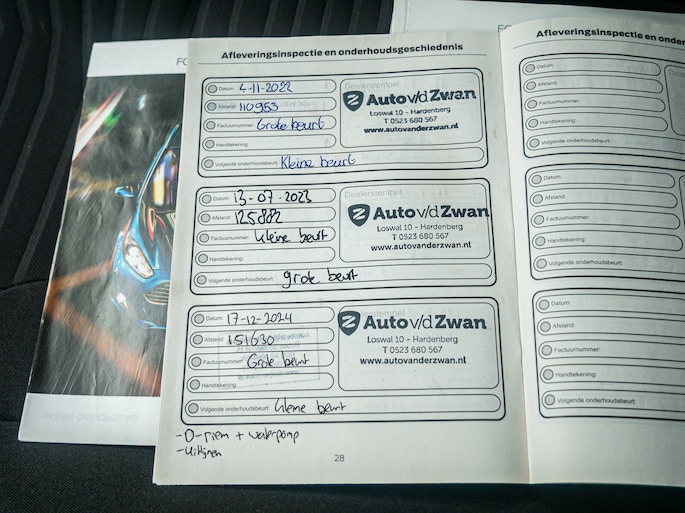 FO
FO
Afleveringsinspectie en onderhoudsgeschiedenis
Datum: 4-11-2022
Afstand: 110953
Factuurnummer: Grote beurt
Handtekening:
Volgende onderhoudsbeurt: Kleine beurt
Dealerstempel
Auto v/d Zwan
Loswal 10 - Hardenberg
T 0523 680 567
www.autovanderzwan.nl
Datum: 13-07-2023
Afstand: 125882
Factuurnummer: Kleine beurt
Handtekening:
Volgende onderhoudsbeurt: grote beurt
Dealerstempel
Auto v/d Zwan
Loswal 10 - Hardenberg
T 0523 680 567
www.autovanderzwan.nl
Datum: 17-12-2024
Afstand: 151630
Factuurnummer: Grote beurt
Handtekening:
Volgende onderhoudsbeurt: Kleine beurt
Auto v/d Zwan
Loswal 10 - Hardenberg
T 0523 680 567
www.autovanderzwan.nl
-D-riem + waterpomp
-Uitlijnen
28
Afleveringsinspectie en onder
Datum:
Afstand:
Factuurnummer:
Handtekening:
Volgende onderhoudsbeurt:
Datum:
Afstand:
Factuurnummer:
Handtekening:
Volgende onderhoudsbeurt:
Datum:
Afstand:
Factuurnummer:
Handtekening:
Volgende onderhoudsbeurt: